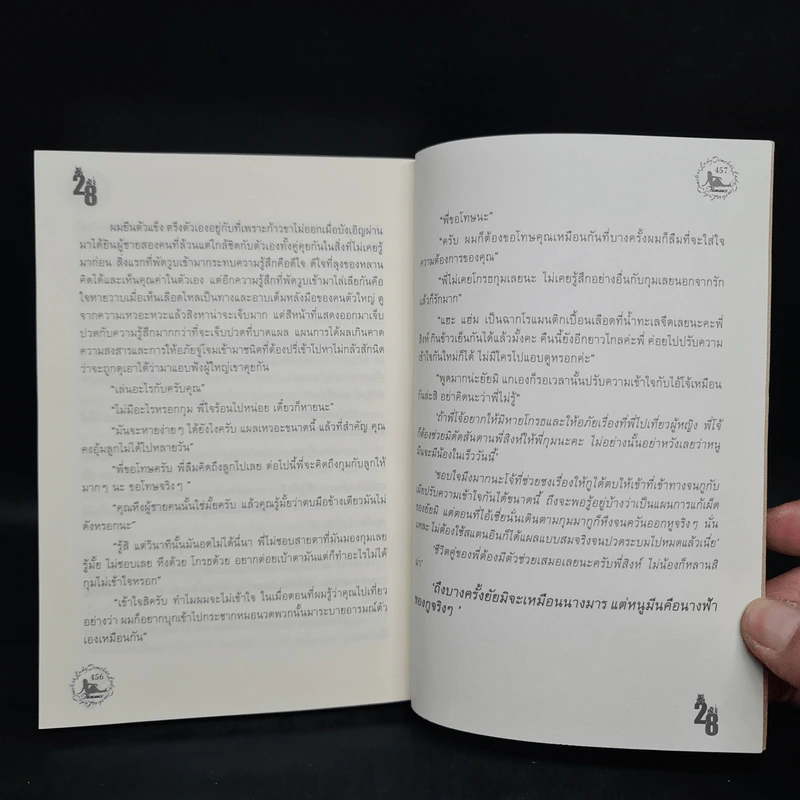 28
ผมยืนตัวแข็ง ตรึงตัวเองอยู่กับที่เพราะก้าวขาไม่ออกเมื่อบังเอิญผ่าน
มาได้ยินผู้ชายสองคนที่ล้วนแต่ใกล้ชิดกับตัวเองทั้งคู่คุยกันในสิ่งที่ไม่เคยรู้
มาก่อน สิ่งแรกที่พัดวูบเข้ามากระทบความรู้สึกคือดีใจ ดีใจที่ลุงของหลาน
คิดได้และเห็นคุณค่าในตัวเอง แต่อีกความรู้สึกที่พัดวูบเข้ามาไล่เลียกันคือ
ใจหายวาบเมื่อเห็นเลือดไหลเป็นทางและอาบเต็มหลังมือของคนตัวใหญ่ ดู
จากความเหวอะหวะแล้วสิงหาน่าจะเจ็บมาก แต่สีหน้าที่แสดงออกมาเจ็บ
ปวดกับความรู้สึกมากกว่าที่จะเจ็บปวดที่บาดแผล แผนการได้ผลเกินคาด
ความสงสารและการให้อภัยจู่โจมเข้ามาชนิดที่ต้องปรี่เข้าไปหาไม่กลัวสักนิด
ว่าจะถูกดุเอาได้ว่ามาแอบฟังผู้ใหญ่เขาคุยกัน
“เล่นอะไรกับครับคุณ”
“ไม่มีอะไรหรอกกุม พี่ใจร้อนไปหน่อย เดี๋ยวก็หายนะ”
“มันจะหายง่ายๆ ได้ยังไงครับ แผลเหวอะขนาดนี้ แล้วที่สำคัญ คุณ
คงอุ้มลูกไม่ได้ไปหลายวัน”
“พี่ขอโทษครับ พี่ลืมคิดถึงลูกไปเลย ต่อไปนี้พี่จะคิดถึงกุมกับลูกให้
มากๆ นะ ขอโทษจริงๆ”
“คุณหึงผู้ชายคนนั้นใช่มั้ยครับ แล้วคุณรู้มั้ยว่าตบมือข้างเดียวมันไม่
ดังหรอกนะ”
“รู้สิ แต่วินาทีนั้นมันอดไม่ได้นี่นา พี่ไม่ชอบสายตาที่มันมองกุมเลย
รู้มั้ย ไม่ชอบเลย หึงด้วย โกรธด้วย อยากต่อยเบ้าตามันแต่ก็ทำอะไรไม่ได้
กุมไม่เข้าใจหรอก”
“เข้าใจสิครับ ทำไมผมจะไม่เข้าใจ ในเมื่อตอนที่ผมรู้ว่าคุณไปเที่ยว
อย่างว่า ผมก็อยากบุกเข้าไปกระชากหมอนวดพวกนั้นมาระบายอารมณ์ตัว
เองเหมือนกัน”
456
457
“พี่ขอโทษนะ”
“ครับ ผมก็ต้องขอโทษคุณเหมือนกันที่บางครั้งผมก็ลืมที่จะใส่ใจ
ความต้องการของคุณ”
“พี่ไม่เคยโกรธกุมเลยนะ ไม่เคยรู้สึกอย่างอื่นกับกุมเลยนอกจากรัก
แล้วก็รักมาก”
“แฮะ แฮ่ม เป็นฉากโรแมนติกเปื้อนเลือดที่น้ำทะเลจืดเลยนะคะพี่
สิงห์ กินข้าวเย็นกันได้แล้วมั้งคะ คืนนี้ยังอีกยาวไกลค่ะพี่ ค่อยไปปรับความ
เข้าใจกันใหม่ก็ได้ ไม่มีใครไปแอบดูหรอกค่ะ”
“พูดมากน่ะยัยมิ แกเองก็รอเวลานั้นปรับความเข้าใจกับไอ้โจ้เหมือน
กันล่ะสิ อย่าคิดนะว่าพี่ไม่รู้”
‘ถ้าพี่โจ้อยากให้มีหายโกรธและให้อภัยเรื่องที่พี่ไปเที่ยวผู้หญิง พี่โจ้
ก็ต้องช่วยมิดัดสันดานพี่สิงห์ให้พี่กุมนะคะ ไม่อย่างนั้นอย่าหวังเลยว่าหนู
มีนจะมีน้องในเร็ววันนี้’
‘ขอบใจมึงมากนะโจ้ที่ช่วยชงเรื่องให้กูได้ตบให้เข้าที่เข้าทางจนกูกับ
เมียปรับความเข้าใจกันได้ขนาดนี้ ถึงจะพอรู้อยู่บ้างว่าเป็นแผนการแก้เผ็ด
ของยัยมิ แต่ตอนที่ไอ้เชี่ยนั่นเดินตามกุมมากูก็หึงจนควันออกหูจริงๆ นั่น
แหละ ไม่ต้องใช้สแตนอินก็ได้แผลแบบสมจริงจนปวดระบมไปหมดแล้วเนี่ย’
‘ชีวิตคู่ของพี่ต้องมีตัวช่วยเสมอเลยนะครับพี่สิงห์ ไม่น้องก็หลานสิ
น่า’
‘ถึงบางครั้งยัยมิจะเหมือนนางมาร แต่หนูมีนคือนางฟ้า
ของกูจริงๆ ’
28